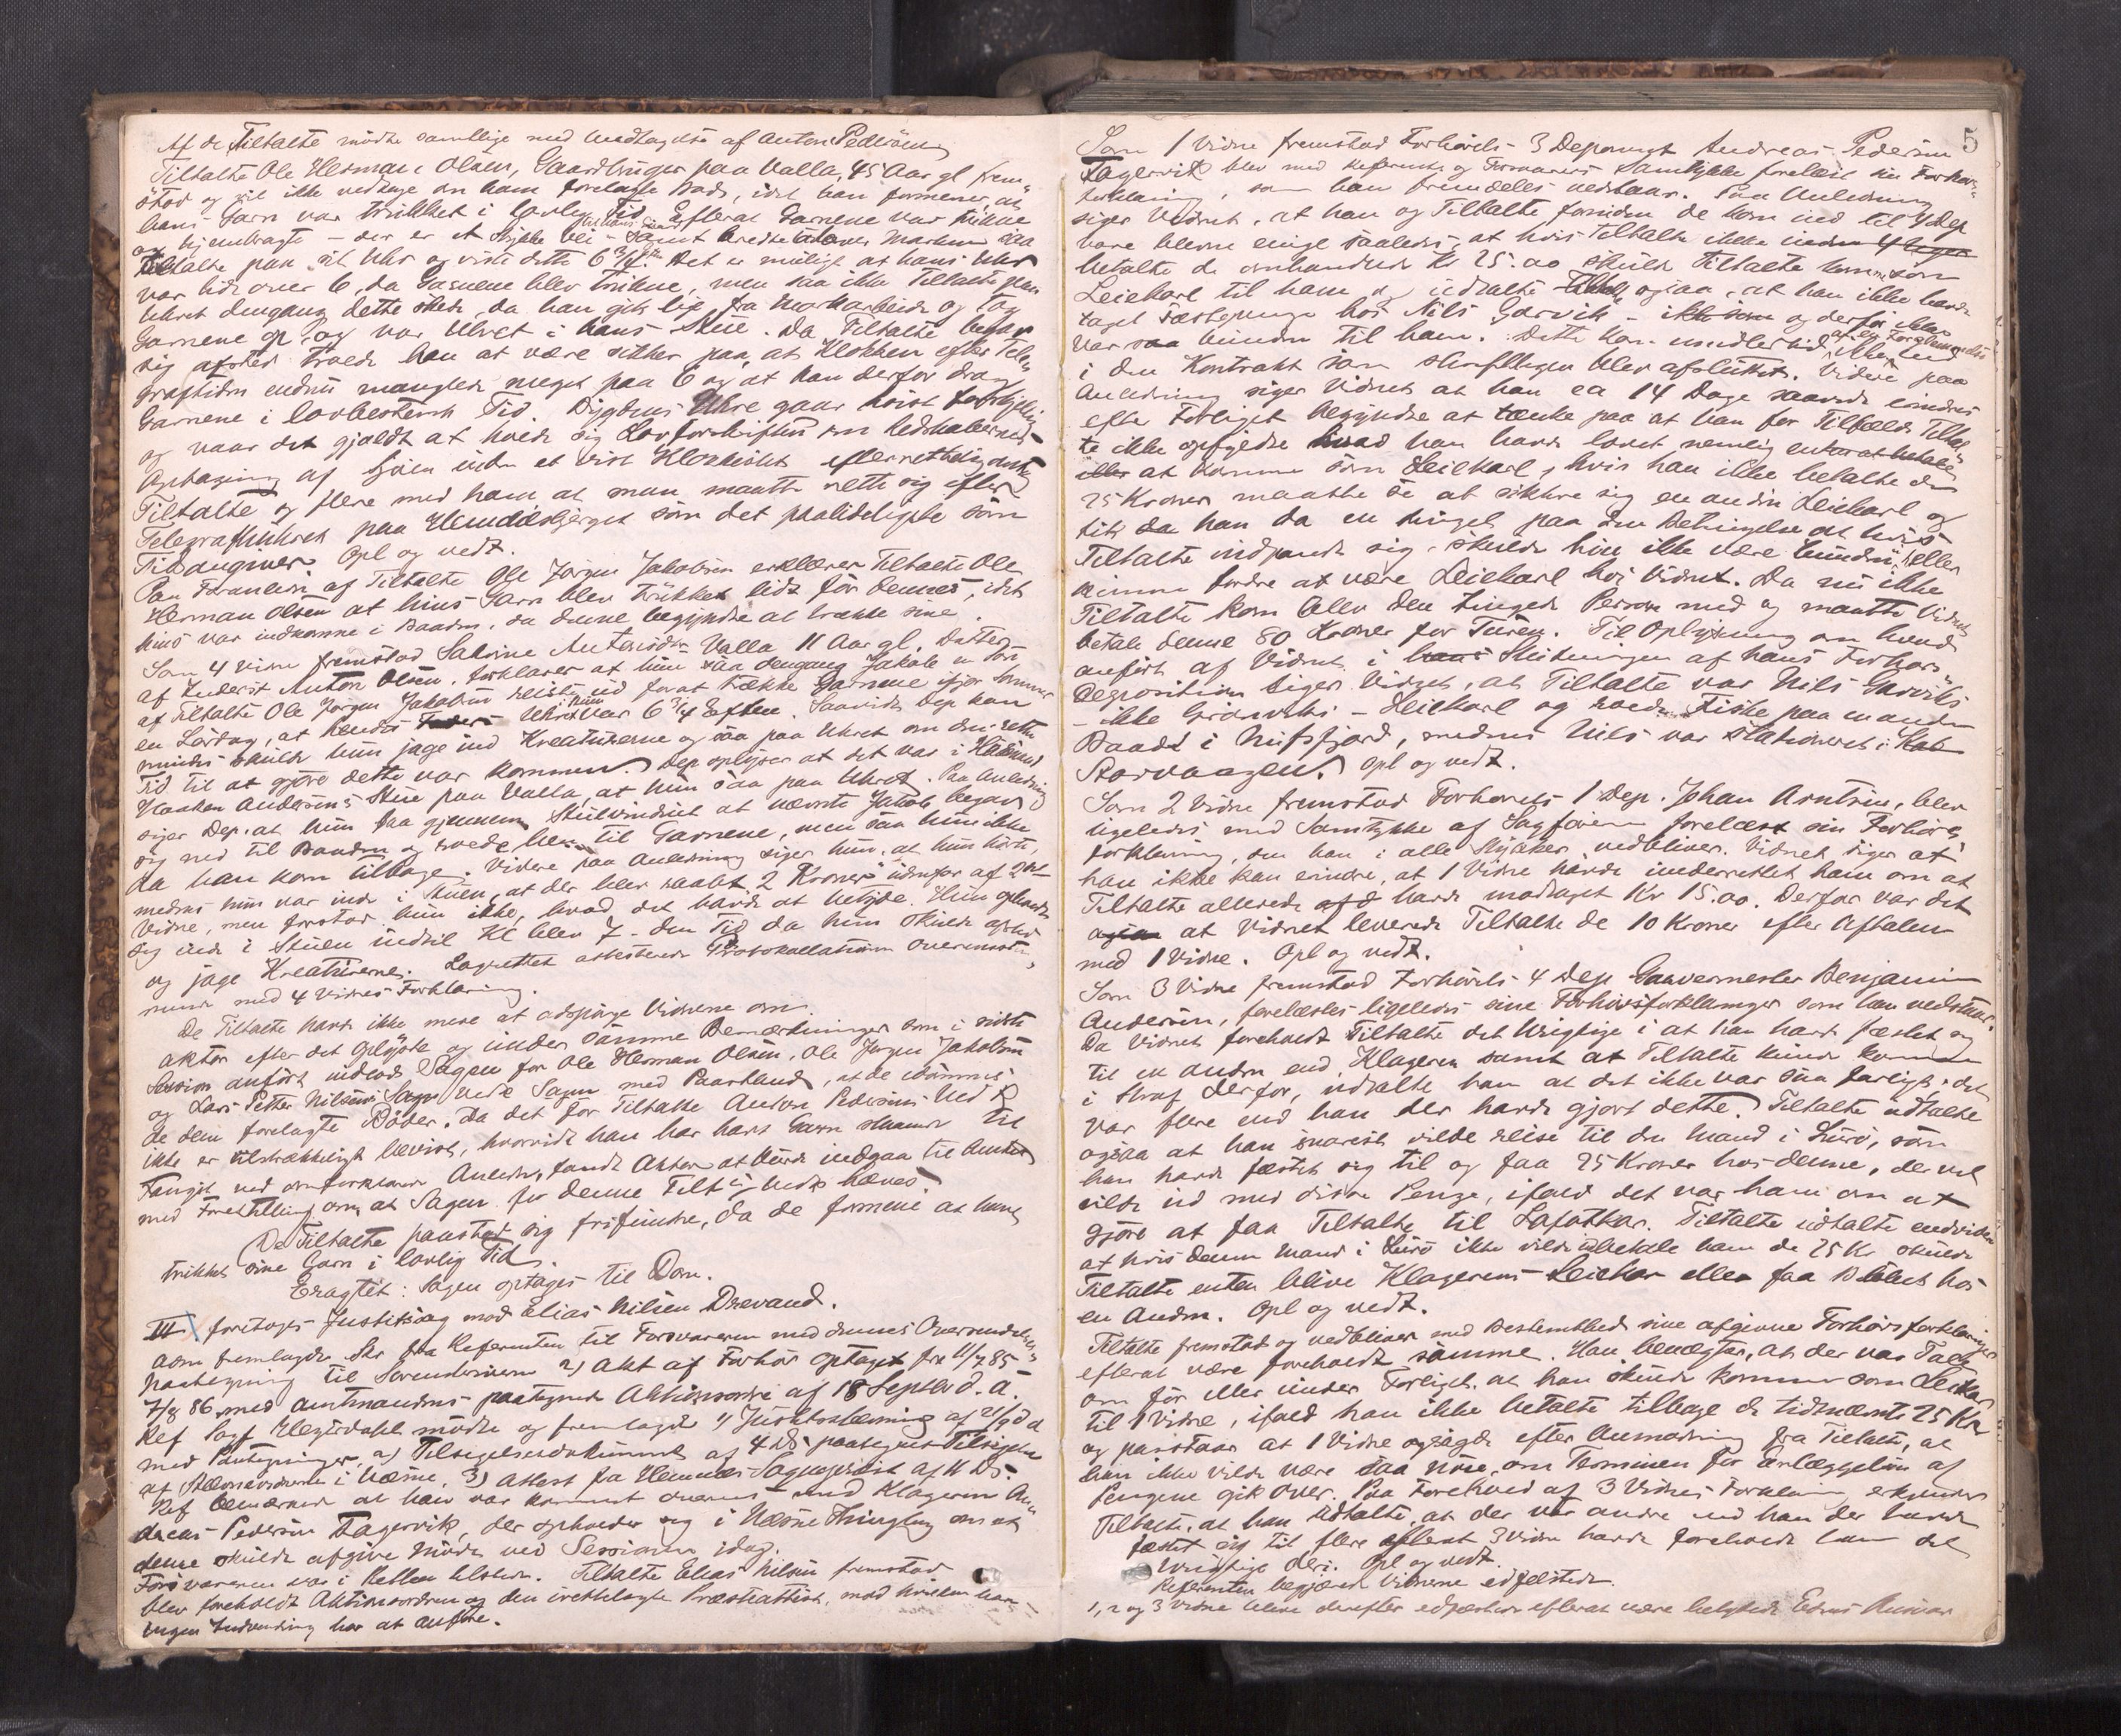 Af de Tiltalte mødte samtlige med Undtagelse af Anton Pedersen
Tiltalte Ole Herman Olsen, Gaardbruger paa Valla, 45 Aar gl frem„
stod og vil ikke vedtage den ham forelagte Bøde, idet han formener, at
hans Garn var trukket i lovlig Tid. Efterat Garnene var trukne
og hjembragte – der er et Stykke Vei – samt bredte udover Marken saa
Tiltalte paa sit Uhr og viste dette 6 3/4. Det er muligt at hans Uhr
var lidt over 6, da Garnene blev trukne, men saa ikke Tiltalte paa
Uhret dengang dette skede, da han gik lige fra Markarbeide og tog
Garnene op, og var Uhret i hans Stue. Da Tiltalte begav
sig afsted troede han at være sikker paa, at Klokken efter Tele„
graftiden endnu manglede meget paa 6 og at han derfor drog
Garnene i lovbestemt Tid. Bygdens Uhre gaar høist forskjellig
og naar det gjaldt at holde sig Lovforskriften om Redskabernes
Optagning af Sjøen inden et vist Klokkeslet efterrettelig antog
Tiltalte og flere med ham at man maatte rette sig efter
Telegrafuhret paa Hemnæsbjerget som det paalideligste som
Tidangiver. Opl og vedt.
Paa Foranledn af Tiltalte Ole Jørgen Jakobsen erklærer Tiltalte Ole
Herman Olsen at hins Garn blev trukket lidt før dennes, idet
hins var indkomne i Baaden, da denne begyndte at trække sine.
Som 4 Vidne fremstod Sabine Antonsdtr Valla 11 Aar gl, Datter
af Inderst Anton Olsen, forklarer at hun saa dengang Jakob en Søn
af Tiltalte Ole Jørgen Jakobsen reiste ud forat trække Garnene ifjor Sommer
en Lørdag, at hendes Uhr var 6 1/4 Eftm. Saavidt Dep kan
mindes skulde hun jage ind Kreaturerne og saa paa Uhret om den rette
Tid til at gjøre dette var kommen. Dep oplyser at det var i Husmand
Haakon Andersens Stue paa Valla, at hun saa paa Uhret. Paa Anledning
siger Dep. at hun saa gjennem Stuevinduet at nævnte Jakob begav
sig ned til Baaden og roede hen til Garnene, men saa hun ikke
da han kom tilbage. Videre paa Anledning siger hun, at hun hørte,
medens hun var inde i Stuen, at der blev raabt 2 Kroner udenfor af 2det
Vidne, men forstod hun ikke, hvad det havde at betyde. Hun opholdt
sig inde i Stuen indtil Kl blev 7 – den Tid da hun skulde afsted
og jage Kreaturerne. Lagrettet attesterede Protokollationens overensstem„
mende med 4 Vidnes Forklaring.
De Tiltalte havde ikke mere at adspørge Vidnerne om.
Aktor efter det oplyste og under samme Bemærkninger som i sidste
Session anført indlod Sagen for Ole Herman Olsen, Ole Jørgen Jakobsen
og Lars Petter Nilsens Sags Vedk Sagen med Paastand, at de idømmes
de dem forelagte Bøder. Da det for Tiltalte Anton Pedersens Vedk
ikke er tilstrækkeligt bevist, hvorvidt han har havt Garn staaende til
Fangst ved omforklarede Anledn, fandt Aktor at burde indgaa til Amtet
med Forestilling om, at Sagen for denne Tilt s Vedk hæves.
De Tiltalte paastod sig frifundne, da de formene at have
trukket sine Garn i lovlig Tid.
Eragtet: Sagen optages til Dom.
III foretoges Justitssag mod Elias Nilsen Drevand.
Adm fremlagde Skr fra Referenten til Forsvareren med dennes Oversendelses„
paategning til Sorenskriveren 2) Akt af Forhør optaget fra 11/7 85 –
7/8 86 med Amtmandens paategnede Aktionsordre af 18 Septbr d. A.
Ref Sagf Hegerdahl mødte og fremlagde 1) Justitsstævning af 21/9 d A
med Paategninger, 2) Tilsigelsesdokument af 4 ds paategnet Tilsigelse
af Stævnevidnerne i Næsne, 3) Attest fra Hemnæs Sognepræst af 11 ds.
Ref bemærkede at han var kommet overens med Klageren An„
dreas Pedersen Fagervik, der opholder sig i Næsne Thinglag om at
denne skulde afgive Møde ved Sessionen idag.
Forsvareren var i Retten tilstede. Tiltalte Elias Nilsen fremstod
blev foreholdt Aktionsordren og den irettelagte Præsteattest, mod hvilken han
ingen Indvending har at anføre.
5
Som 1 Vidne fremstod Forhørets 3 Deponent Andreas Pedersen
Fagervik blev med Referents og Forsvarers Samtykke forelæst sin Forhørs„
forklaring, som han fremdeles vedstaar. Paa Anledning
siger Vidnet, at han og Tiltalte forinden de kom ind til 4 Dep
vare blevne enige saaledes, at hvis Tiltalte ikke inden 4 Dage
betalte de omhandlede Kr 25.00 skulde Tiltalte komme som
Leiekarl til ham og udtalte ogsaa, at han ikke havde
taget Fæstepenge hos Nils Garvik – og derfor ikke
var bunden til ham. Dette kom imidlertid ikke ind
i den Kontrakt som skriftligen blev afsluttet. Videre paa
Anledning siger Vidnet at han ca 14 Dage saavidt erindres
efter Forliget begyndte at tænke paa at han for Tilfælde Tiltal„
te ikke opfyldte hvad han havde lovet nemlig enten at betale
eller at komme som Leiekarl, hvis han ikke betalte de
25 Kroner maatte se at sikkre sig en anden Leiekarl og
fik han da en tinget paa den Betingelse at hvis
Tiltalte indfandt sig, skulde hin ikke være bunden eller
kunne fordre at være Leiekarl hos Vidnet. Da nu ikke
Tiltalte kom blev den tingede Person med og maatte Vidnet
betale denne 80 Kroner for Turen. Til Oplysning om hvad
anført af Vidnet i Slutningen af hans Forhørs„
deposition siger Vidnet, at Tiltalte var Nils Garviks
– ikke – Leiekarl og roede Fiske paa en anden
Baad i Nufsfjord, medens Nils var stationeret i
Storvaagen. Opl og vedt.
Som 2 Vidne fremstod Forhørets 1 Dep. Johan Arntsen, blev
ligeledes med Samtykke af Sagførerne forelæst sin Forhørs„
forklaring, som han i alle Stykker vedbliver. Vidnet siger at
han ikke kan erindre, at 1 Vidne havde underrettet ham om at
Tiltalte allerede havde modtaget Kr 15.00. Derfor var det
at Vidnet leverede Tiltalte de 10 Kroner efter Aftalen
med 1 Vidne. Opl og vedt.
Som 3 Vidne fremstod Forhørets 4 Dep Garvermester Benjamin
Andersen, forelæstes ligeledes sine Forhørsforklaringer som han vedstaar.
Da Vidnet foreholdt Tiltalte det Urigtige i at han havde fæstet sig
til en anden end Klageren samt at Tiltalte kunde komme
i Straf derfor, udtalte han at det ikke var saa farligt, det
var flere end han der havde gjort dette. Tiltalte udtalte
ogsaa at han snarest vilde reise til den Mand i Lurø, som
han havde fæstet sig til og faa 25 Kroner hos denne, der vel
vilde ud med disse Penge, ifald det var ham om at
gjøre at faa Tiltalte til Lofotkar. Tiltalte udtalte endvidere
at hvis denne Mand i Lurø ikke vilde betale ham de 25 Kr skulde
Tiltalte enten blive Klagerens Leiekar eller faa Beløbet hos
en Anden. Opl og vedt.
Tiltalte fremstod og vedbliver med Bestemthed sine afgivne Forhørsforklaringer
efterat være foreholdt samme. Han benægter, at der var Tale
om før eller under Forliget, at han skulde komme som Leiekar
til 1 Vidne, ifald han ikke betalte tilbage de tidtnævnte 25 Kr
og paastaar at 1 Vidne ogsagde efter Anmodning fra Tiltalte, at
han ikke vilde være saa nøie, om Terminen for Erlæggelsen af
Pengene gik over. Paa Forehold af 3 Vidnes Forklaring erkjender
Tiltalte, at han udtalte, at der var andre end han der havde
fæstet sig til flere efterat 3 Vidne havde foreholdt ham det
Urigtige deri. Opl og vedt.
Referenten begjærede Vidnerne edfæstede.
1, 2 og 3 Vidne bleve derefter edfæstede efterat være betydede Edens Ansvar